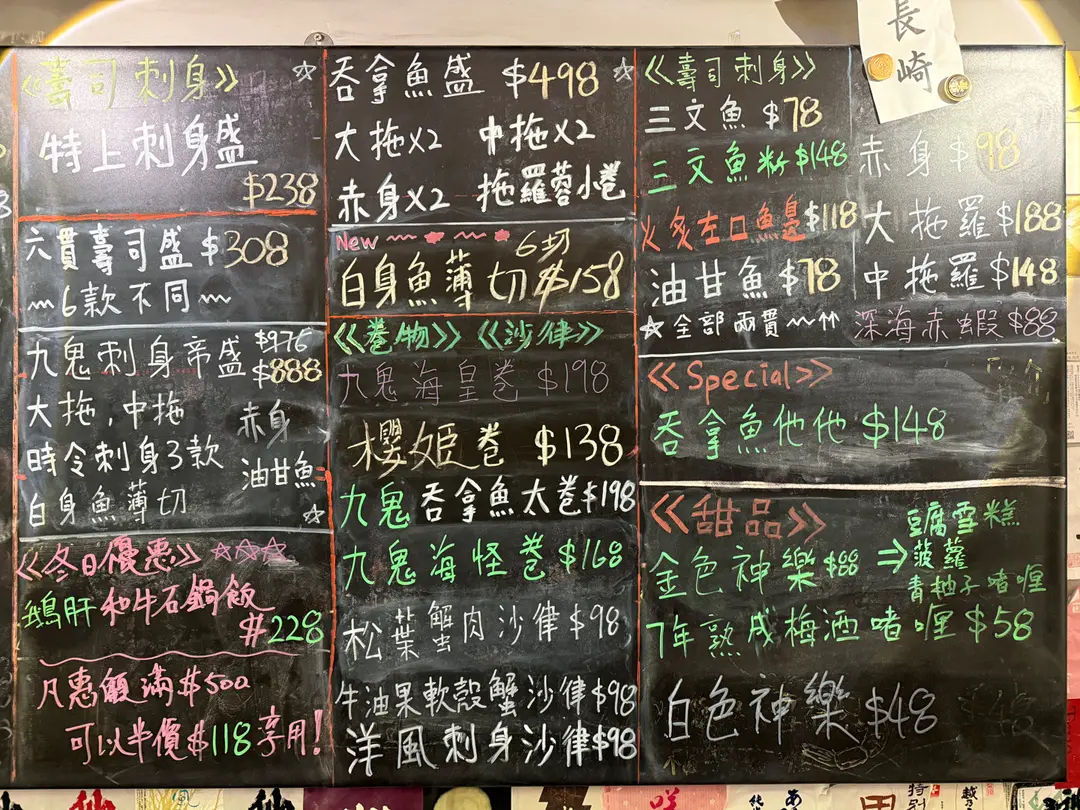 長崎
《壽司刺身》
特上刺身盛
$238
六貫壽司盛 $308
~6款不同~
九鬼刺身帝盛 $976
$888
大拖,中拖 赤身
時令刺身3款 油甘魚
白身魚薄切
《冬日優惠》
鵝肝 和牛石鍋飯
#228
凡惠顧滿$500
可以半價$118享用!
吞拿魚盛 $498
大拖X2 中拖X2
赤身X2 拖羅蓉小卷
New 6切
白身魚薄切 $158
《卷物》《沙律》
九鬼海皇卷 $198
櫻姬卷 $138
九鬼吞拿魚太卷$198
九鬼海怪卷$168
松葉蟹肉沙律$98
牛油果軟殼蟹沙律$98
洋風刺身沙律$98
《壽司刺身》
三文魚 $78
三文魚籽$148
火炙左口魚邊$118
油甘魚 $78
全部兩貫~
赤身 $98
大拖羅$188
中拖羅$148
深海赤蝦$88
《Special》
吞拿魚他他 $148
《甜品》
金色神樂$88 ⇒ 豆腐雪糕
菠蘿
青柚子啫喱
7年熟成梅酒啫喱 $58
白色神樂 $48
特別
越乃
あ
純